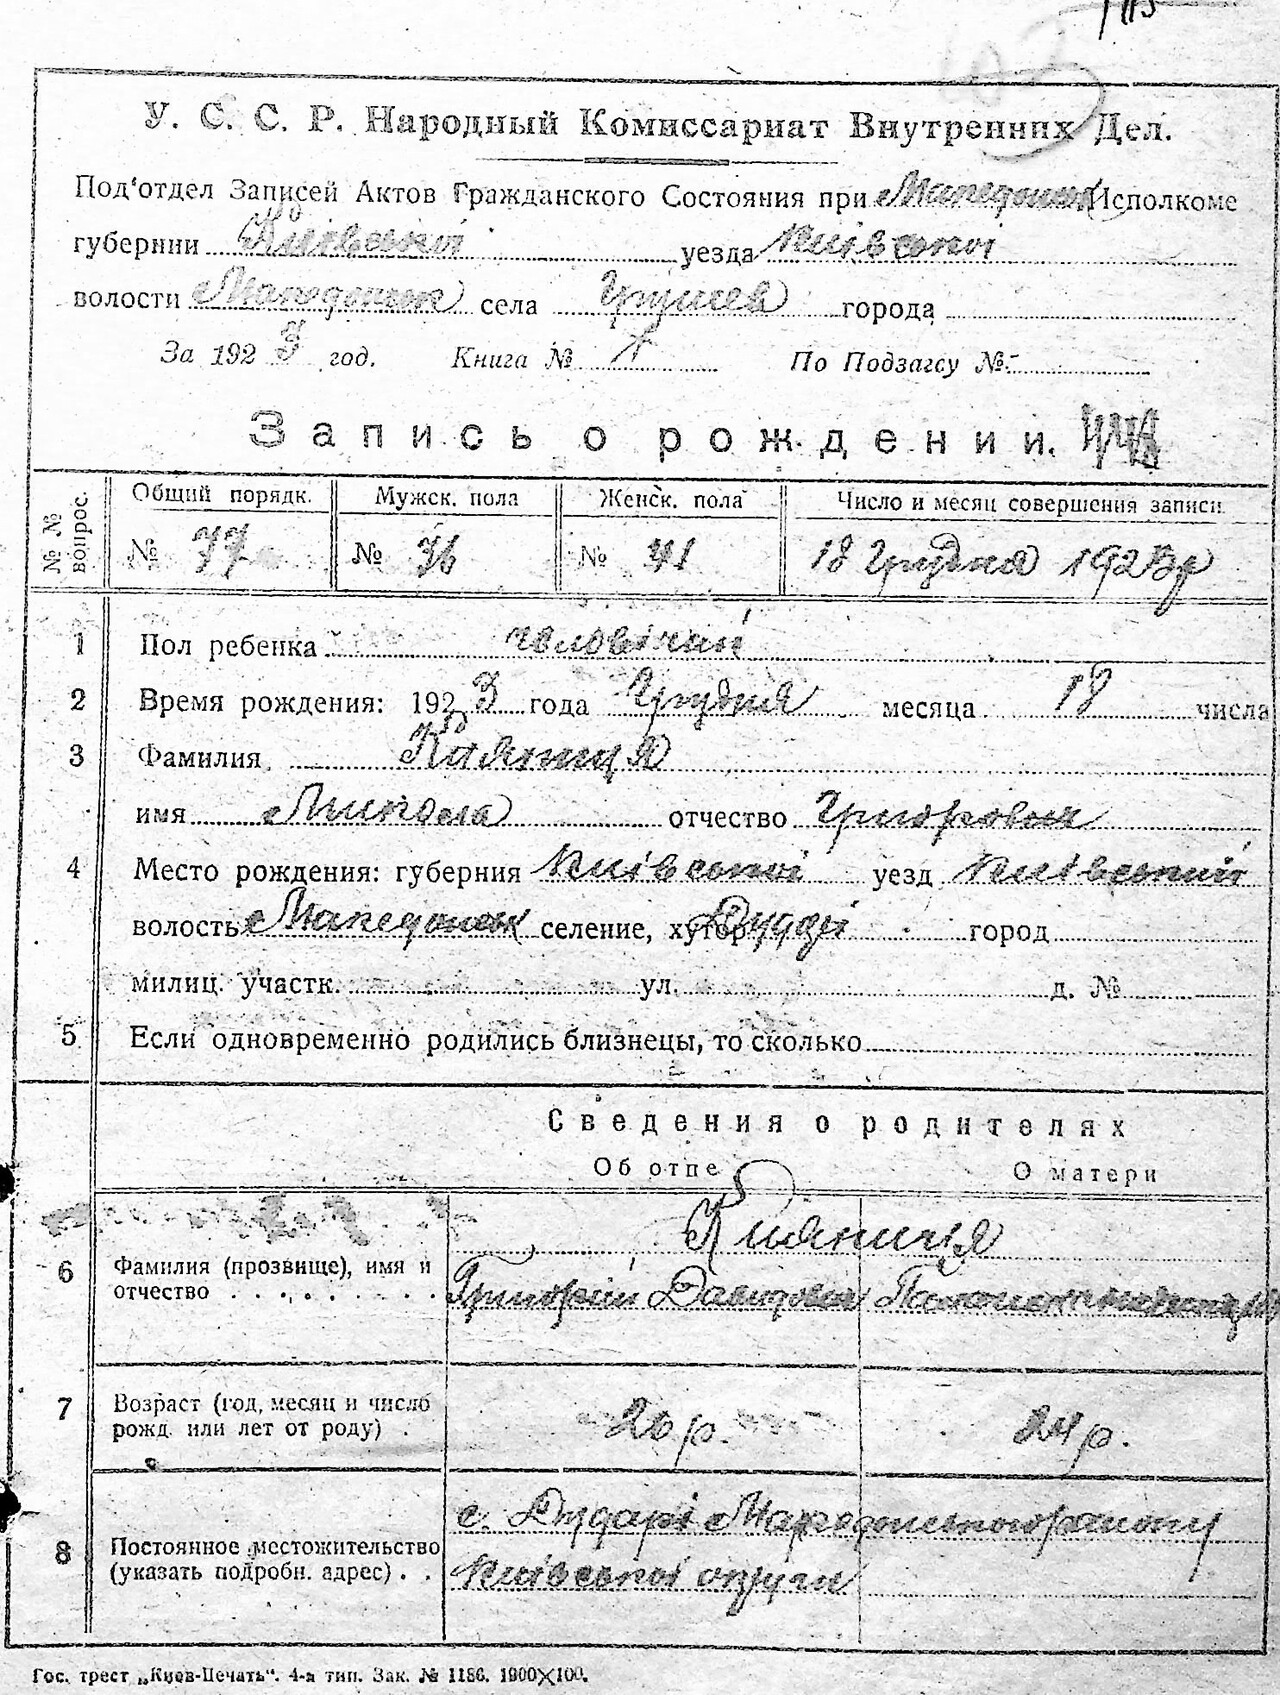 У. С. С. Р. Народный Комиссариат Внутренних Дел.
Под‘отдел Записей Актов Гражданского Состояния при Македонск Исполкоме
губернии Київської уезда Київської
волости Македонск села Грушев города
За 1923 год. Книга № 1 По Подзагсу №
Запись о рождении.
№ № вопрос. Общий порядк. Мужск. пола Женск. пола Число и месяц совершения записи
№ 77 № 36 № 41 18 Грудня 1923 р
1 Пол ребенка чоловічий
2 Время рождения: 1923 года Грудня месяца 18 числа
3 Фамилия Кияниця
имя Микола отчество Григорович
4 Место рождения: губерния Київської уезд Київський
волость Македонск селение, хутор Дударі город
милиц. участк. ул. д. №
5 Если одновременно родились близнецы, то сколько
Сведения о родителях
Об отце О матери
Кияниця
6 Фамилия (прозвище), имя и
отчество Григорій Давидович
7 Возраст (год, месяц и число
рожд. или лет от роду) 26 р. 24 р.
с. Дударі Македонського району
8 Постоянное местожительство
(указать подробн. адрес) Київської округи
Гос. трест „Киев-Печать“. 4-я тип. Зак. № 1186. 1900×100.